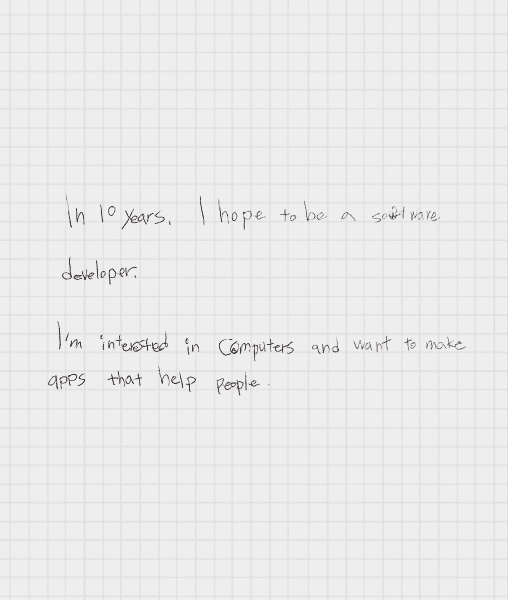 In 10 years, I hope to be a software
developer.
I'm interested in Computers and want to make
apps that help people.